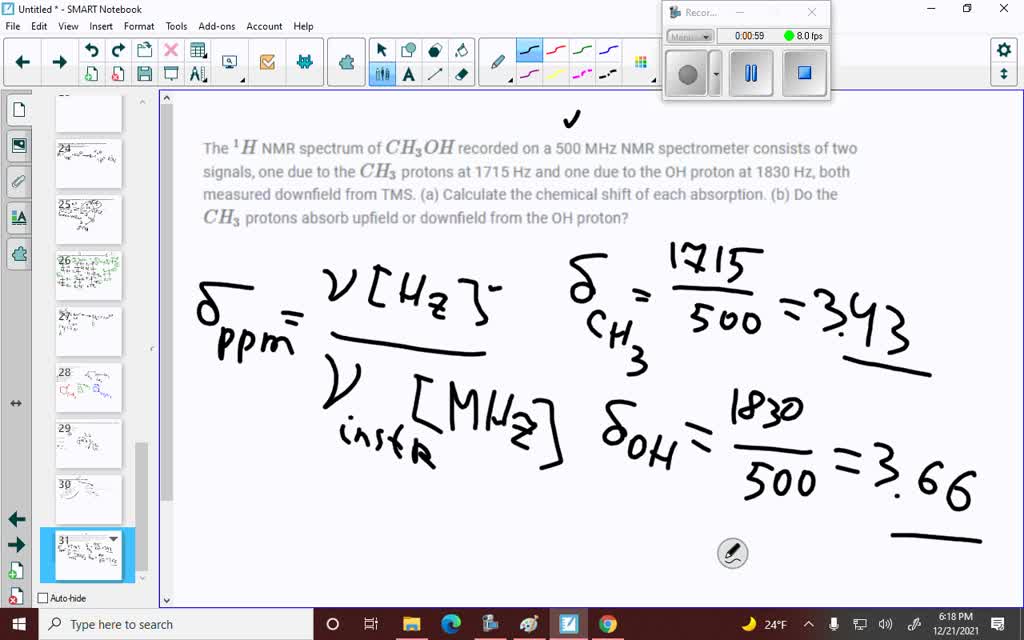 Untitled * - SMART Notebook
File Edit View Insert Format Tools Add-ons Account Help
Recor...
0:00:59
8.0 fps
The ¹H NMR spectrum of CH₃OH recorded on a 500 MHz NMR spectrometer consists of two
signals, one due to the CH₃ protons at 1715 Hz and one due to the OH proton at 1830 Hz, both
measured downfield from TMS. (a) Calculate the chemical shift of each absorption. (b) Do the
CH₃ protons absorb upfield or downfield from the OH proton?
δppm = ν[Hz] / νinstr [MHz]
δCH₃ = 1715 / 500 = 3.43
δOH = 1830 / 500 = 3.66
24
25
26
27
28
29
30
31
Auto-hide
Type here to search
24°F
6:18 PM
12/21/2021